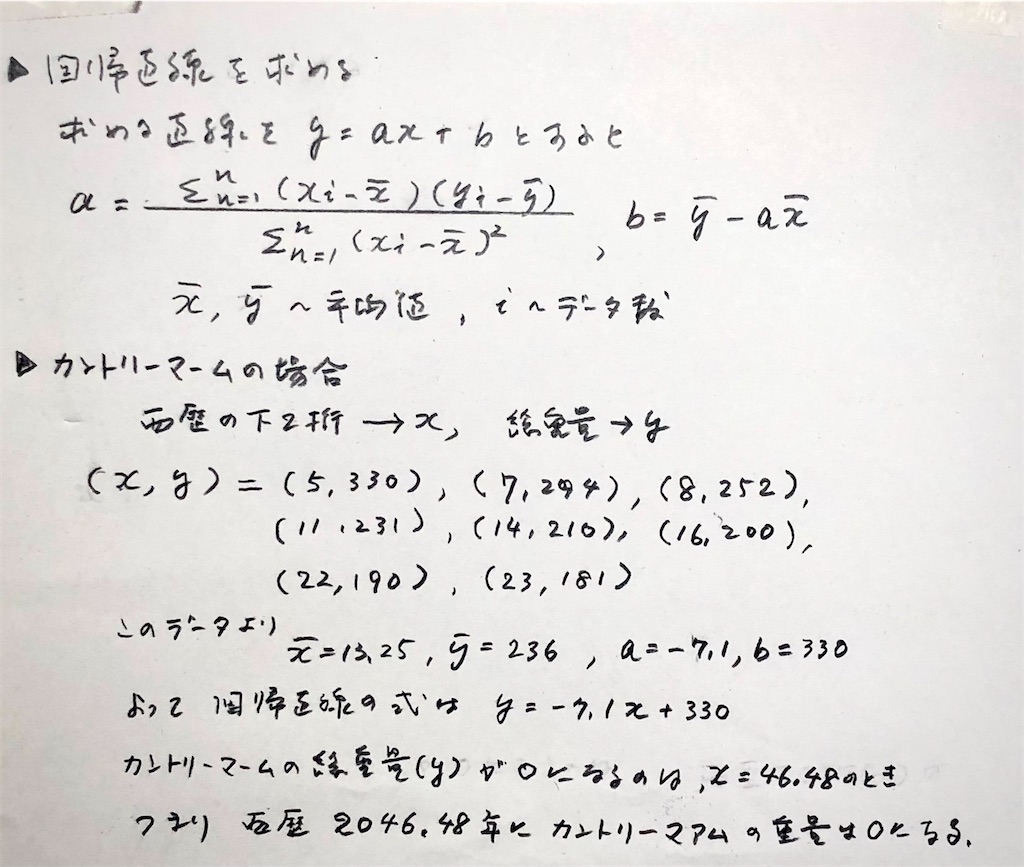 ▶ 回帰直線を求める
求める直線を y = ax + b とすると
a = Σ^n_{n=1} (xi - x̄)(yi - ȳ) / Σ^n_{n=1} (xi - x̄)² , b = ȳ - ax̄
x̄, ȳ ~ 平均値 , i ~ データ数
▶ カントリーマームの場合
西歴の下2桁 → x, 総重量 → y
(x, y) = (5, 330), (7, 294), (8, 252),
(11, 231), (14, 210), (16, 200),
(22, 190), (23, 181)
このデータより x̄ = 13.25, ȳ = 236 , a = -7.1, b = 330
よって 回帰直線の式は y = -7.1x + 330
カントリーマームの総重量(y) が0になるのは, x = 46.48のとき
つまり 西歴 2046.48年に カントリーマアムの重量は0になる.